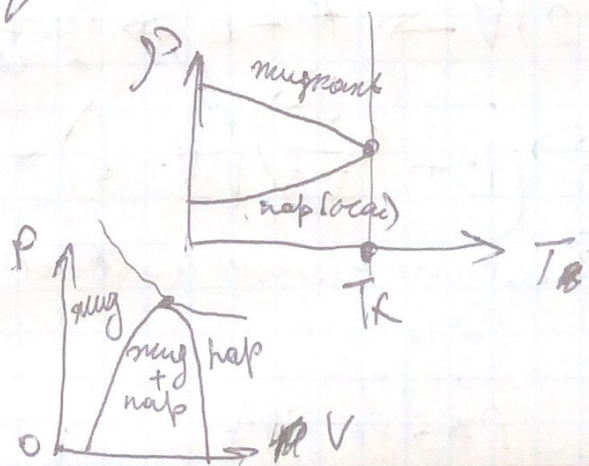 ρ
жидкость
пар (
T
Tк
P
жид
жид
+
пар
пар
0
V